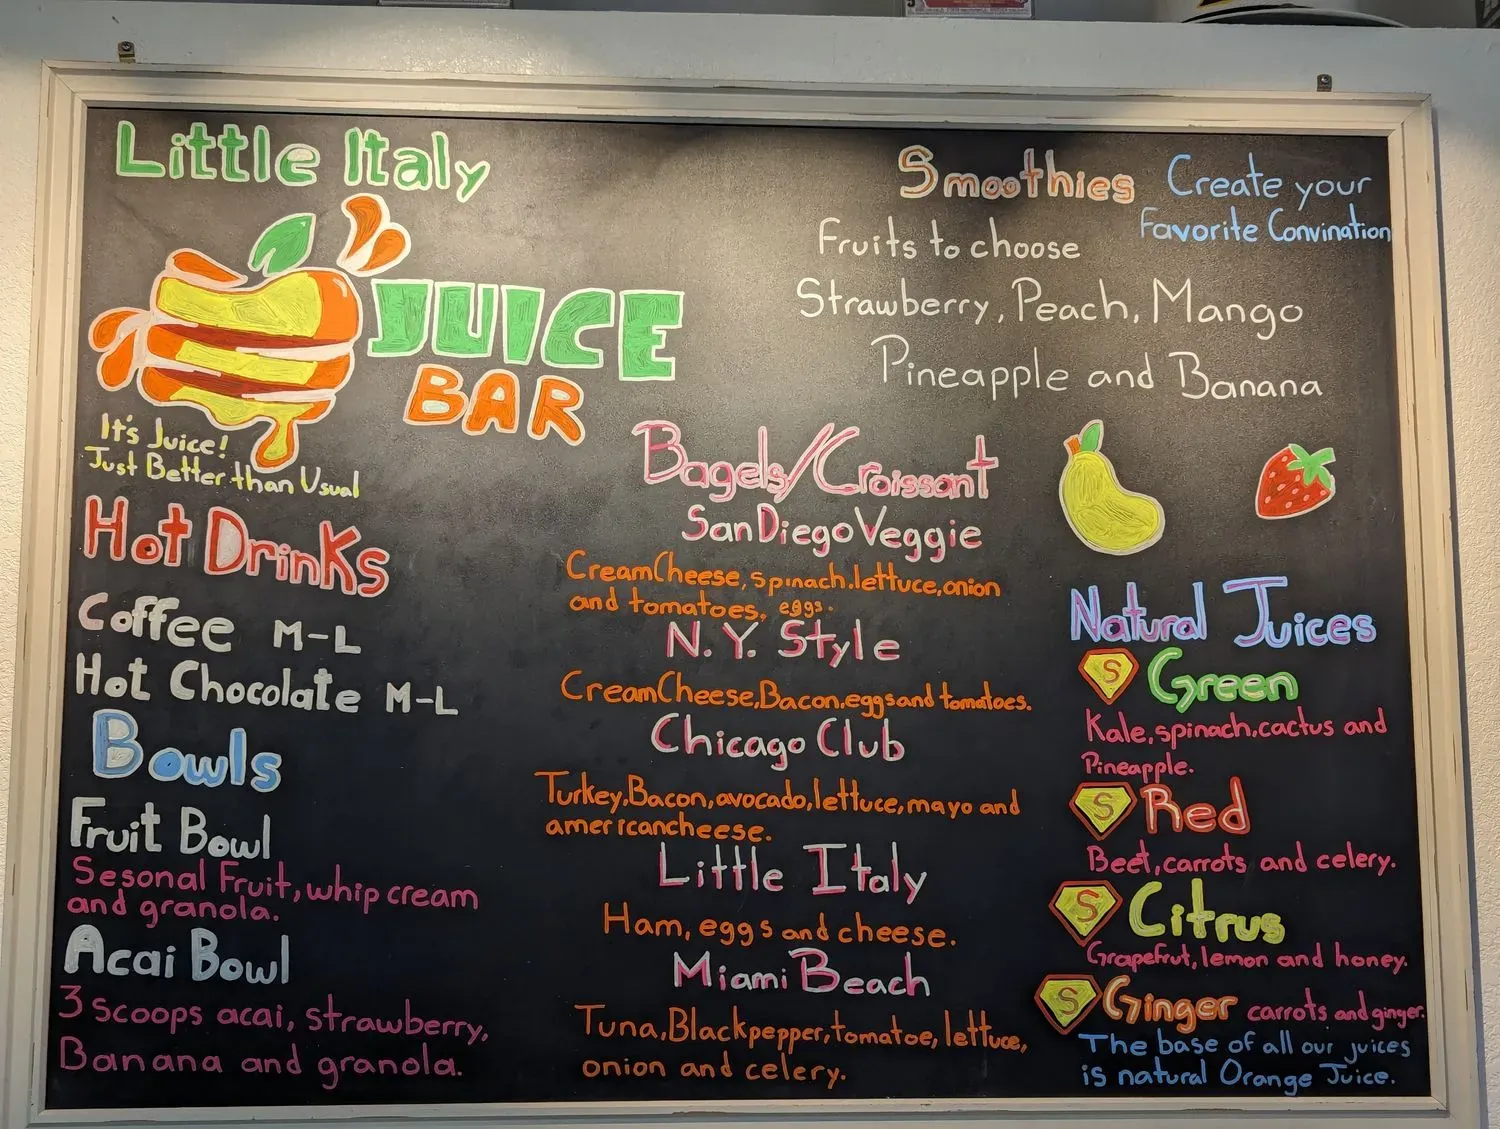 Little Italy
JUICE
BAR
It's Juice!
Just Better than Usual
Hot Drinks
Coffee M-L
Hot Chocolate M-L
Bowls
Fruit Bowl
Sesonal Fruit, whip cream
and granola.
Acai Bowl
3 scoops acai, strawberry,
Banana and granola.
Bagels/Croissant
San Diego Veggie
Cream Cheese, spinach. lettuce, onion
and tomatoes, eggs.
N.Y. Style
Cream Cheese, Bacon, eggs and tomatoes.
Chicago Club
Turkey, Bacon, avocado, lettuce, mayo and
american cheese.
Little Italy
Ham, eggs and cheese.
Miami Beach
Tuna, Black pepper, tomatoe, lettuce,
onion and celery.
Smoothies Create your
Favorite Convination
Fruits to choose
Strawberry, Peach, Mango
Pineapple and Banana
Natural Juices
S Green
Kale, spinach, cactus and
Pineapple.
S Red
Beet, carrots and celery.
S Citrus
Grapefrut, lemon and honey.
S Ginger carrots and ginger.
The base of all our juices
is natural Orange Juice.